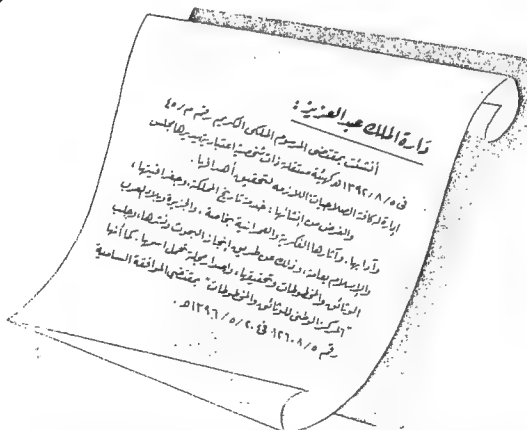 دارة الملك عبد العزيز :
أنشئت بمقتضى المرسوم الملكي الكريم رقم م/٤٥
في ١٣٩٢/٨/٥هـ كهيئة مستقلة ذات شخصية اعتبارية يديرها مجلس
إدارة له كافة الصلاحيات اللازمة لتحقيق أهدافها .
والغرض من إنشائها : خدمة تاريخ المملكة وجغرافيتها ،
وآدابها . وآثارها الفكرية والعمرانية بخاصة ، والجزيرة وبلاد العرب
والإسلام بعامة ، وذلك عن طريق إنجاز البحوث ونشرها ، وجلب
الوثائق والمخطوطات وتحقيقها ، وإصدار مجلة تحمل اسمها . كما أنها
"المركز الوطني للوثائق والمخطوطات" بمقتضى الموافقة السامية
رقم ١٢٦٠٨/٥ في ١٣٩٦/٥/٢٠هـ .